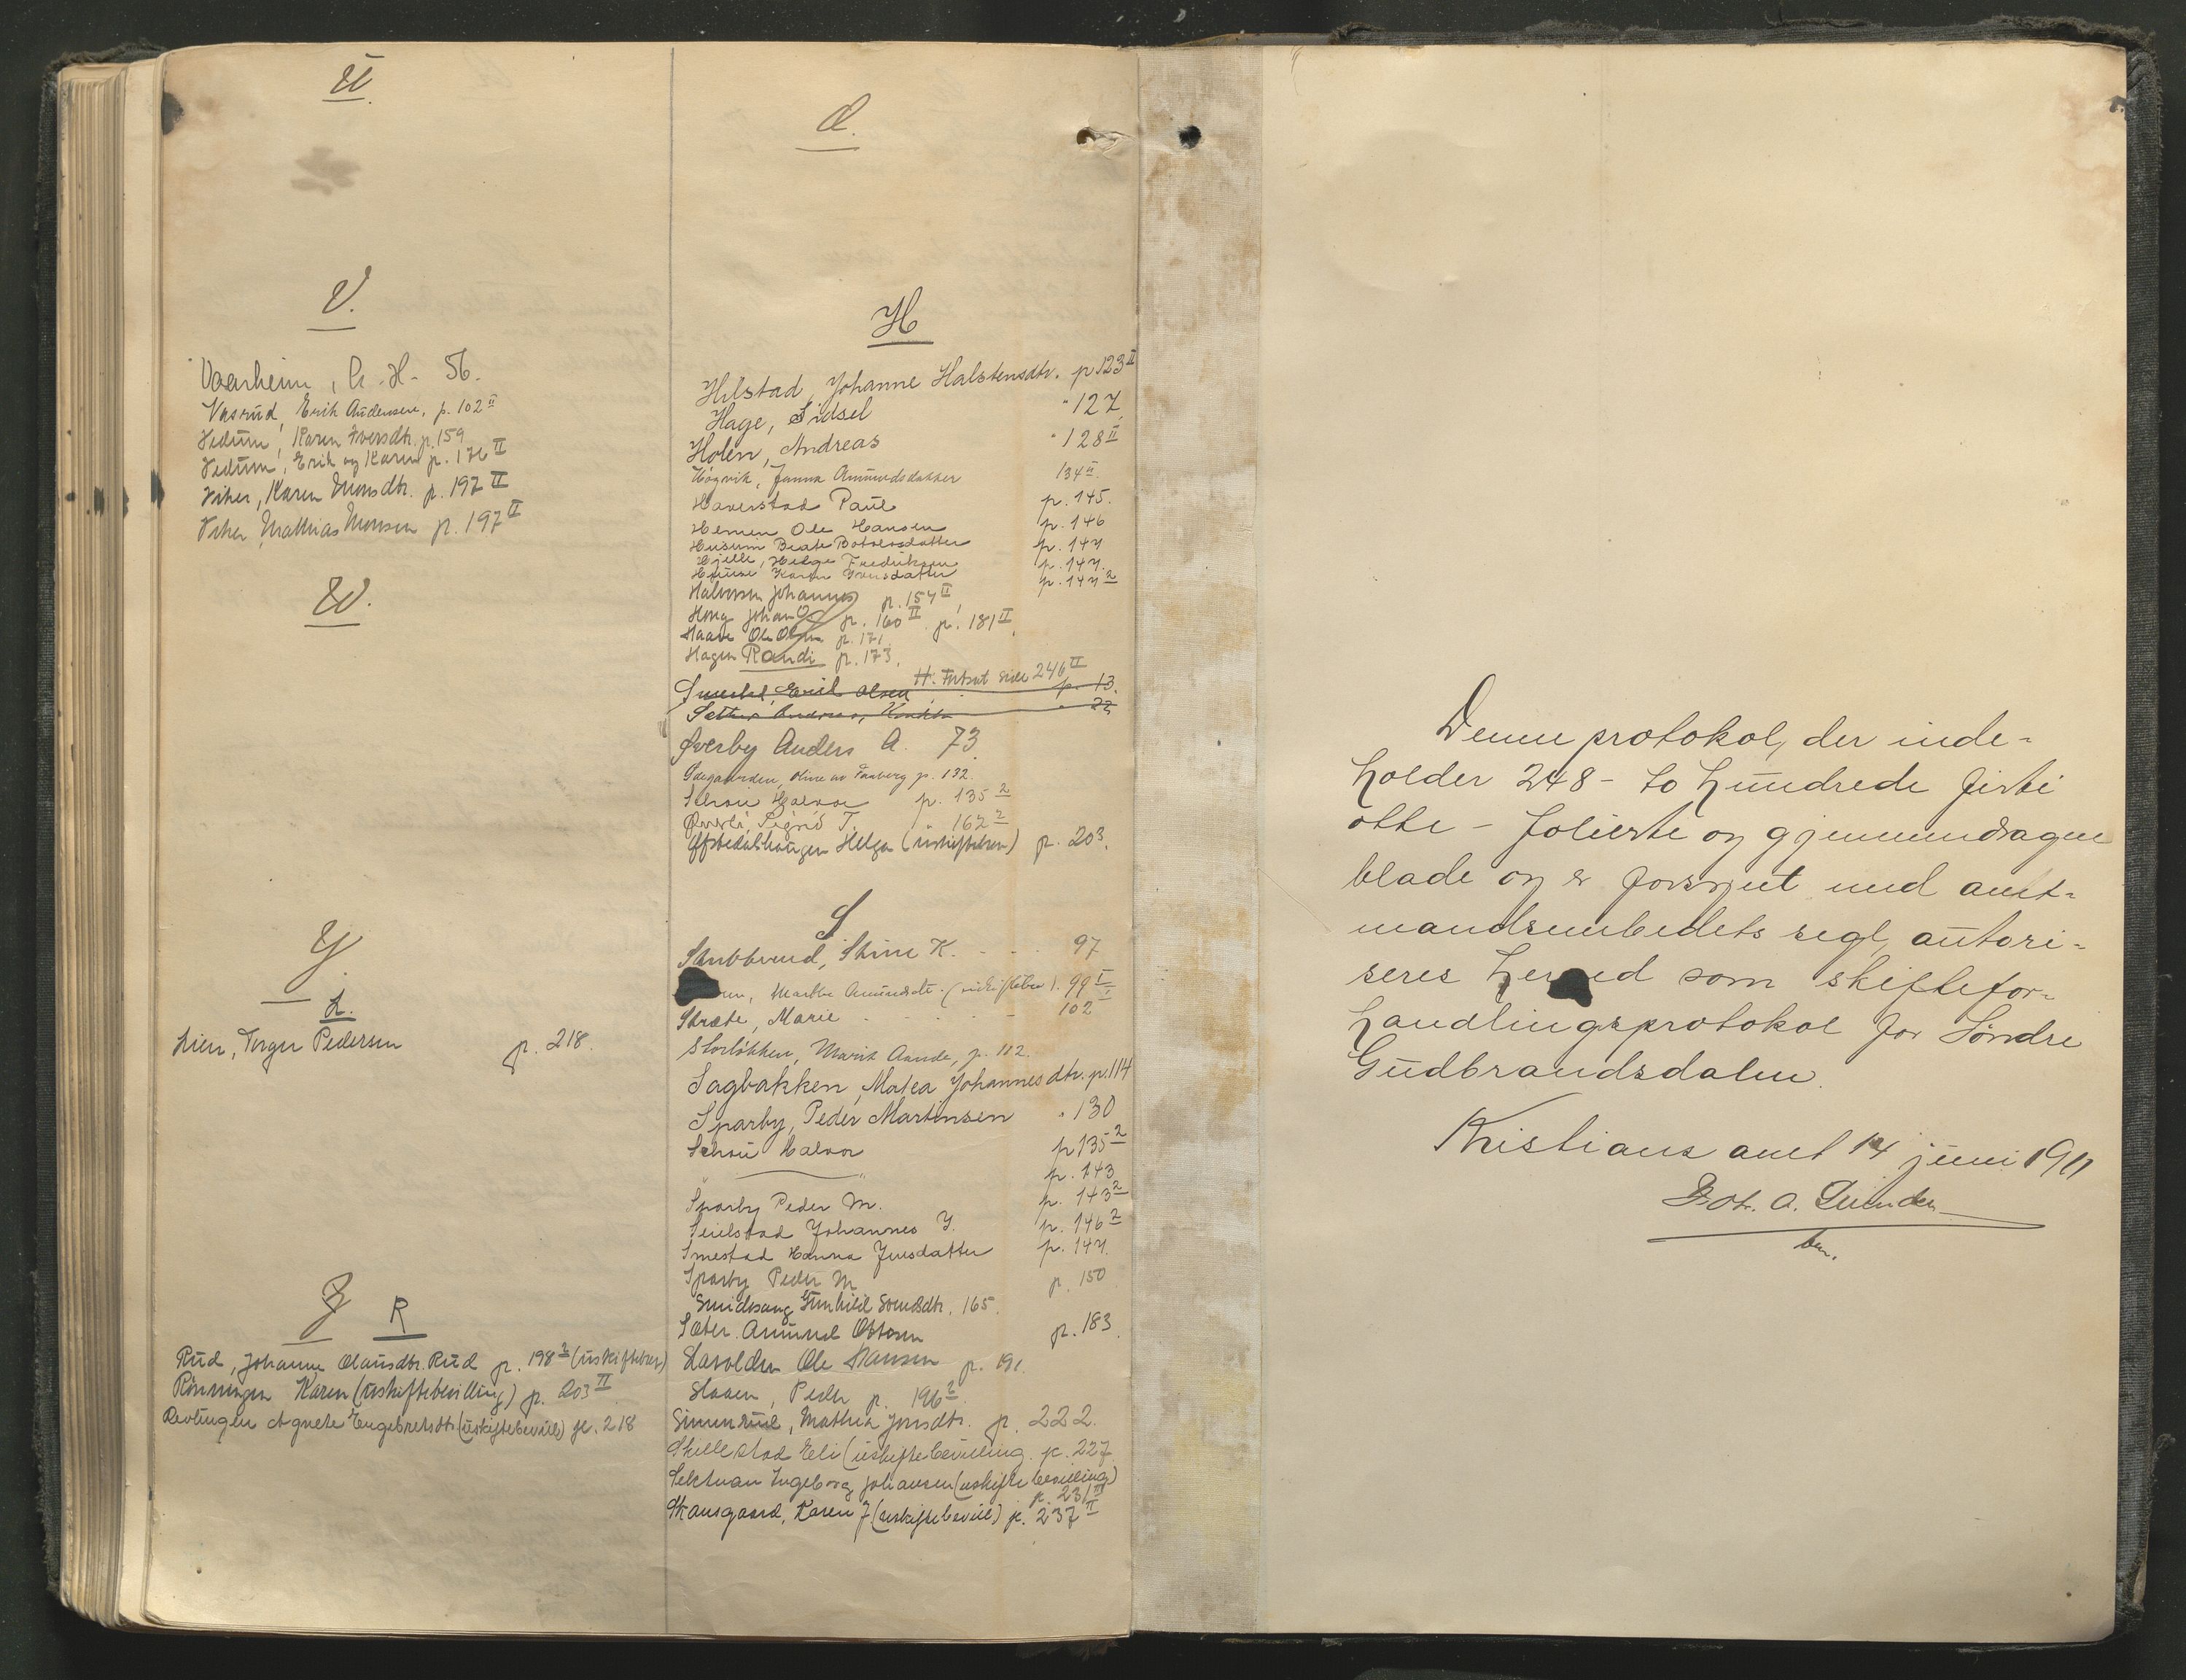 U.
V.
Vaarheim, A. H. - 56.
Vasrud, Erik Andersen, p. 102 II
Vedum, Karen Iversdtr. p. 159
Vedum, Erik og Karen p. 176 II
Viker, Karen Monsdtr. p. 197 II
Viker, Mathias Monsen p. 197 II
W.
Y.
L.
Lien, Torger Pedersen p. 218.
Z R
Rud, Johanne Olausdtr. Rud p. 198 2 (uskiftebev)
Rönningen Karen (uskiftebevilling) p. 203 II
Revlingen Agnete Engebretsdtr (uskiftebevill) p. 218
Æ.
H
Hilstad, Johanne Halstensdtr. p 123 II
Hage, Sidsel " 127
Holen, Andreas " 128 II
Högvik, Janna Amundsdatter 134 II.
Haverstad Paul p. 145.
Hemen Ole Hansen p. 146
Husum Beate Botolvsdatter p. 147
Hjelle, Helge Fredriksen p. 147.
Karen Iversdatter p. 147 2
Halvorsen Johannes p. 154 II
Johan O. p. 160 II p. 181 II
Haave Ole Olsen p. 171.
Hagen Randi p. 173.
H. Fortsat side 246 II
Erik Olsen p. 13.
Sæther Andreas, 22
Øverby Anders A. 73.
Ödegaarden, Oline av Faaberg p. 132.
Schou Halvor p. 135 2
Sigrid T. " 162 2
Offstedalshaugen Helga (uskiftebev) p. 203.
S
Stubberud, Stine K. - - - 97
Marthe Amundsdtr. (uskiftebev). 99 I
Stræte, Marie - - - - - 102 I
Storløkken, Marit Aande, p. 112.
Sagbakken, Matea Johannesdtr. p. 114
Sparby, Peder Martinsen " 130
Schou Halvor p 135 2
" " p. 143
Sparby Peder M. p. 143 2
Seielstad Johannes J. p. 146 2
Smestad Hanna Jensdatter p. 147.
Sparby Peder M p. 150
Gunhild Svendsdtr. 165.
Sæter Amund Ottosen p. 183.
Ole Hansen p. 191.
Staaen, Peder p. 196 2
Simenrud, Mathia Jonsdtr. p. 222.
Skillestad Eli (uskiftebevilling p. 227
Selstuen Ingeborg Johansen (uskiftebevilling)
p. 231 II
Skansgaard, Karen J (uskiftebevill) p. 237 II
Denne protokol, der inde-
holder 248 - to hundrede firti
otte - folierte og gjennemdragne
blade og er forsynt med amt-
mandsembedets segl, autori-
seres herved som skiftefor-
handlingsprotokol for Søndre
Gudbrandsdalen.
Kristians amt 14 juni 1911
bem.